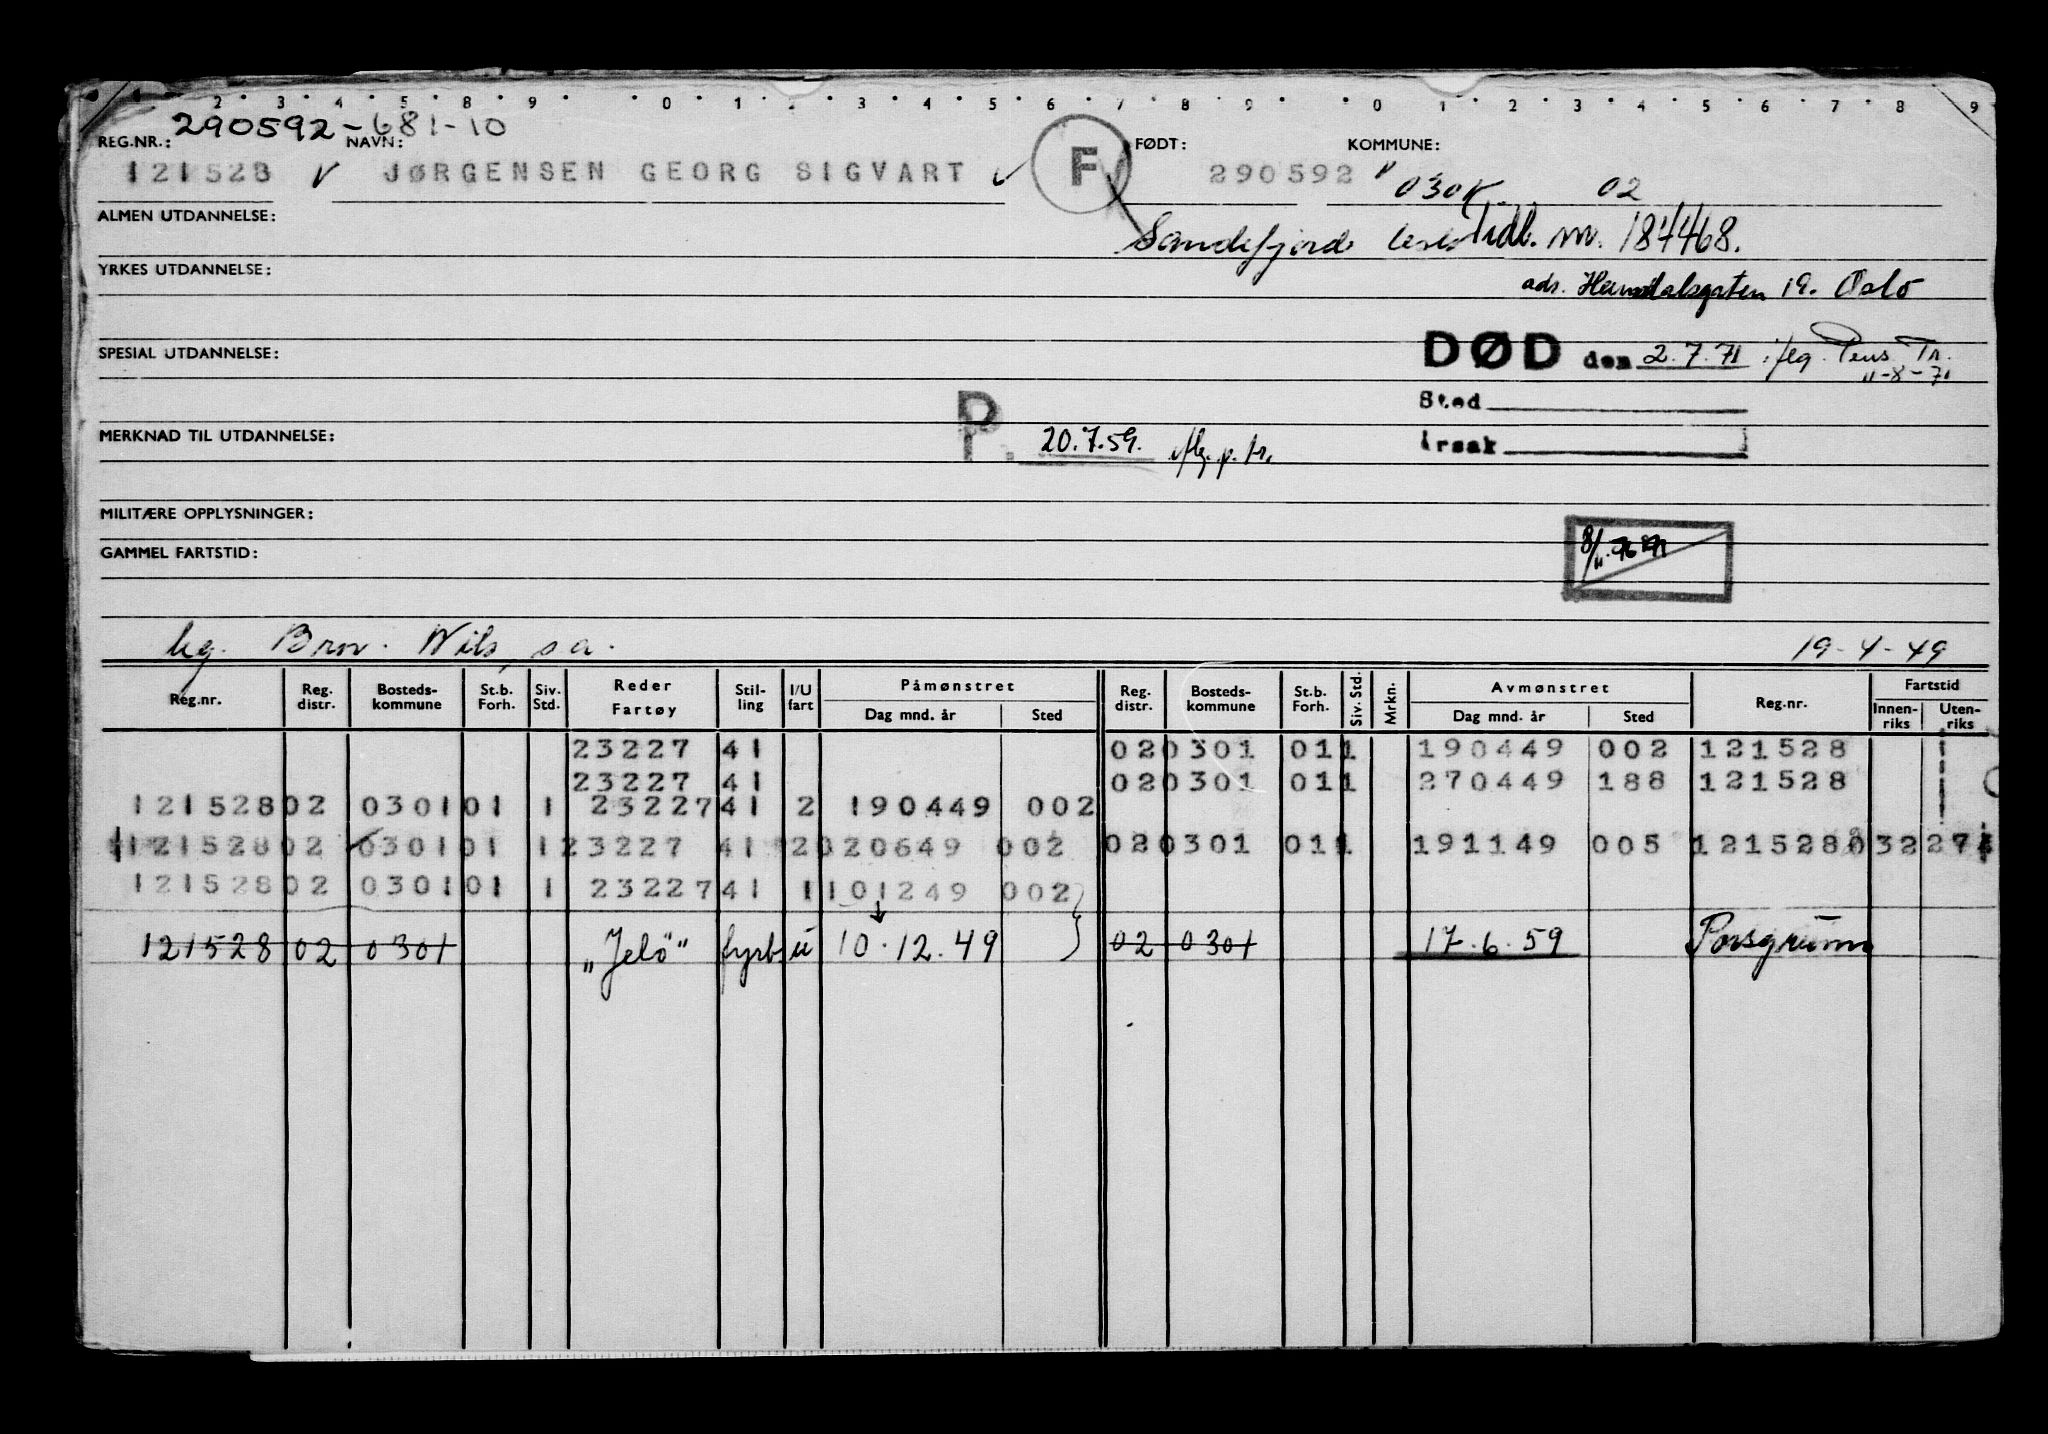 2 3 4 5 8 9 0 1 2 3 4 5 6 7 8 9 0 1 2 3 4 5 6 7 8 9
290592-681-10
REG.NR.: NAVN: FØDT: KOMMUNE:
121528 JØRGENSEN GEORG SIGVART F 290592 02
ALMEN UTDANNELSE:
Sandefjord Tidl. nr. 184468.
YRKES UTDANNELSE:
adr. 19. Oslo
SPESIAL UTDANNELSE:
DØD den 2.7.71 iflg. Pens Tr.
11-8-71
Sted
MERKNAD TIL UTDANNELSE:
P. 20.7.59. iflg. p. tr.
Årsak
MILITÆRE OPPLYSNINGER:
GAMMEL FARTSTID:
leg. Brev. Wils, s.a. 19-4-49
Reg.nr. Reg. distr. Bosteds-kommune St.b. Forh. Siv. Std. Reder Fartøy Stil-ling I/U fart Påmønstret Dag mnd. år Sted Reg. distr. Bosteds-kommune St.b. Forh. Siv. Std. Mrkn. Avmønstret Dag mnd. år Sted Reg.nr. Fartstid Innen-riks Uten-riks
23227 41 020301 011 190449 002 121528
23227 41 020301 011 270449 188 121528
121528 02 0301 01 1 23227 41 2 190449 002
121528 02 0301 01 1 23227 41 2 020649 002 020301 011 191149 005 121528
121528 02 0301 01 1 23227 41 1 101249 002
121528 02 0301 "Jelö" fyrb u 10.12.49 02 0301 17.6.59 Porsgrunn